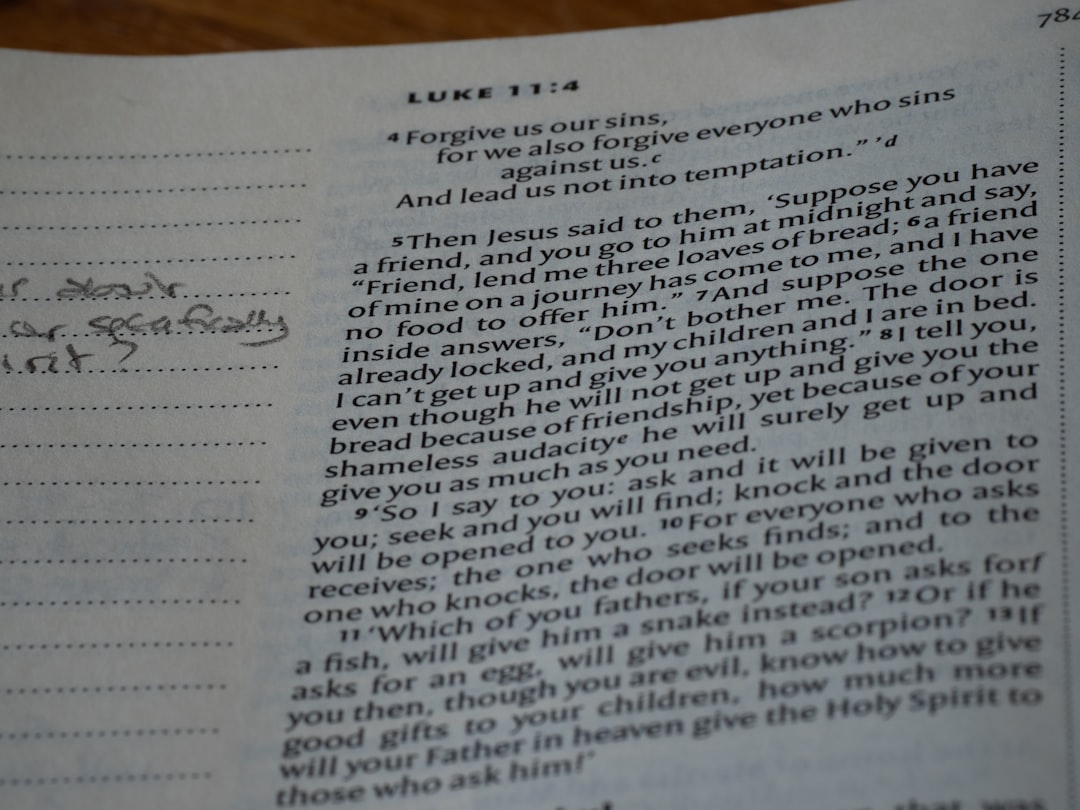 784
LUKE 11:4
4 Forgive us our sins,
for we also forgive everyone who sins
against us.c
And lead us not into temptation.” ’d
5 Then Jesus said to them, ‘Suppose you have
a friend, and you go to him at midnight and say,
“Friend, lend me three loaves of bread; 6 a friend
of mine on a journey has come to me, and I have
no food to offer him.” 7 And suppose the one
inside answers, “Don’t bother me. The door is
already locked, and my children and I are in bed.
I can’t get up and give you anything.” 8 I tell you,
even though he will not get up and give you the
bread because of friendship, yet because of your
shameless audacitye he will surely get up and
give you as much as you need.
9 ‘So I say to you: ask and it will be given to
you; seek and you will find; knock and the door
will be opened to you. 10 For everyone who asks
receives; the one who seeks finds; and to the
one who knocks, the door will be opened.
11 ‘Which of you fathers, if your son asks forf
a fish, will give him a snake instead? 12 Or if he
asks for an egg, will give him a scorpion? 13 If
you then, though you are evil, know how to give
good gifts to your children, how much more
will your Father in heaven give the Holy Spirit to
those who ask him!’